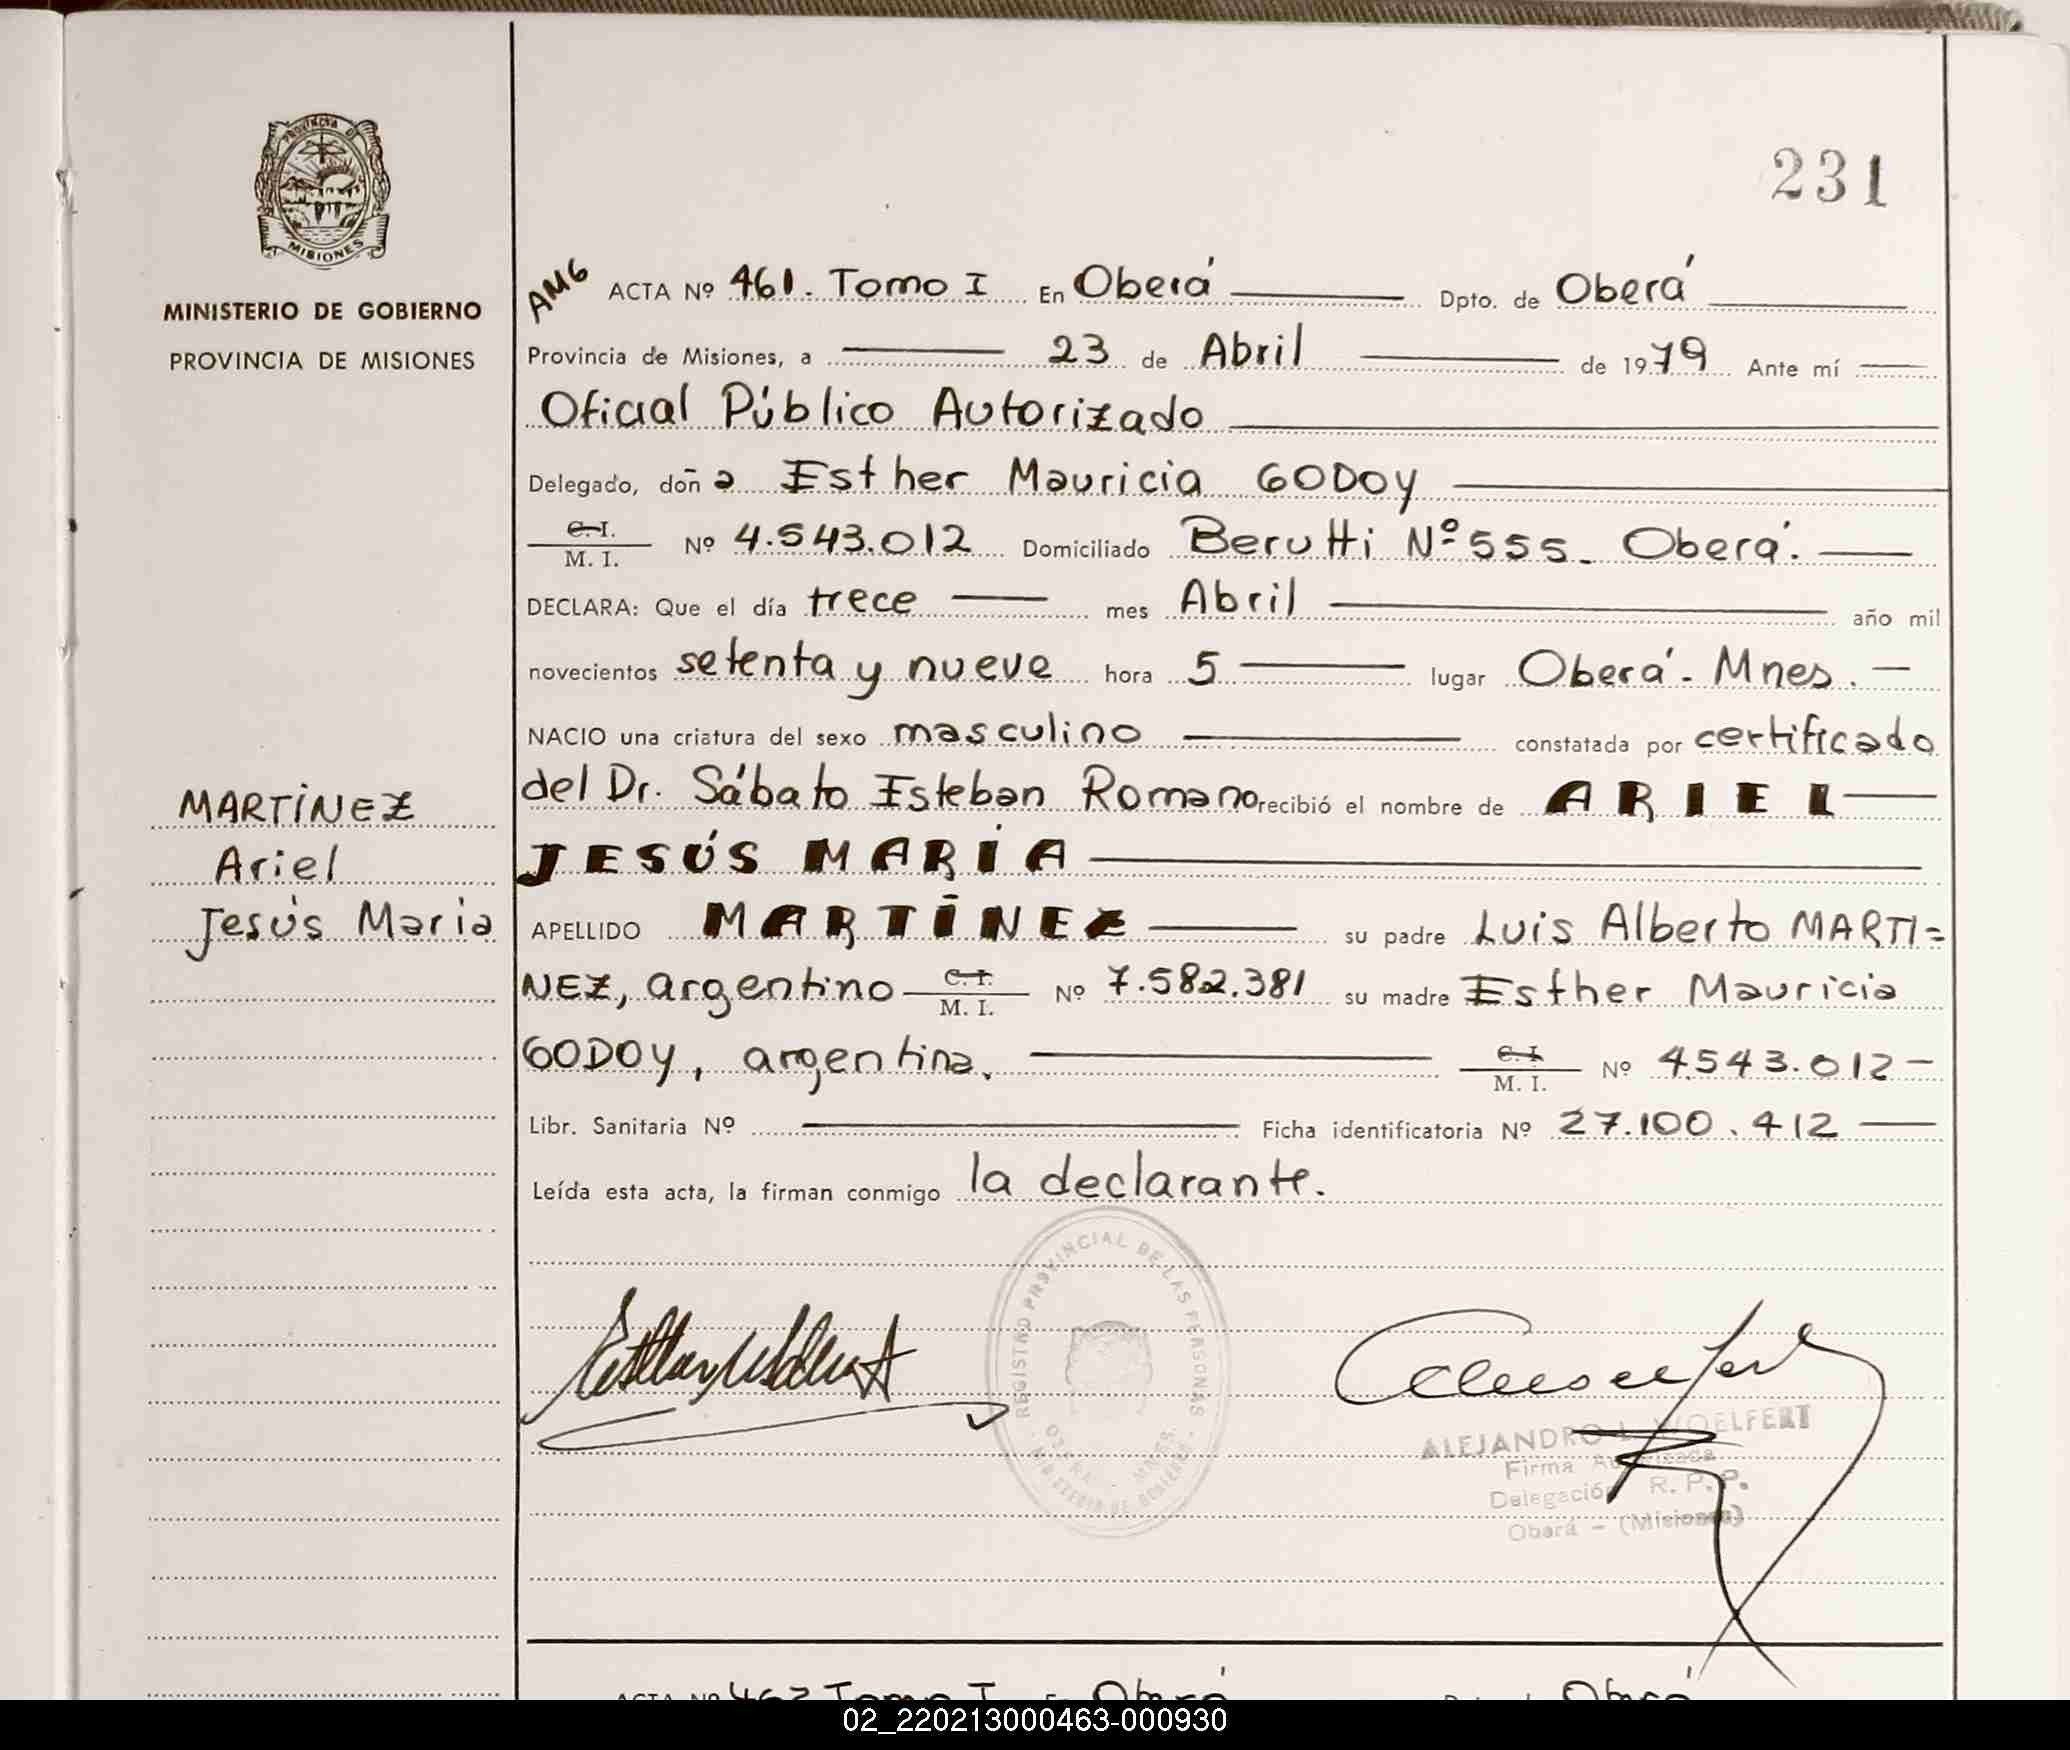 231
PROVINCIA DE
MISIONES
MINISTERIO DE GOBIERNO
PROVINCIA DE MISIONES
AMG ACTA Nº 461. Tomo I En Oberá Dpto. de Oberá
Provincia de Misiones, a 23 de Abril de 1979 Ante mí
Oficial Público Autorizado
Delegado, doña Esther Mauricia GODOY
C. I.
M. I. Nº 4.543.012 Domiciliado Berutti Nº 555_ Oberá.
DECLARA: Que el día trece mes Abril año mil
novecientos setenta y nueve hora 5 lugar Oberá. Mnes.
NACIO una criatura del sexo masculino constatada por certificado
del Dr. Sábato Esteban Romano recibió el nombre de ARIEL
JESÚS MARÍA
APELLIDO MARTÍNEZ su padre Luis Alberto MARTI=
NEZ, argentino C. I.
M. I. Nº 7.582.381 su madre Esther Mauricia
GODOY, argentina. C. I.
M. I. Nº 4543.012
Libr. Sanitaria Nº Ficha identificatoria Nº 27.100.412
Leída esta acta, la firman conmigo la declarante.
MARTÍNEZ
Ariel
Jesús Maria
REGISTRO PROVINCIAL DE LAS PERSONAS
ALEJANDRO L. WOELFERT
Firma Autorizada
Delegación R. P. P.
Oberá - (Misiones)
ACTA Nº 462 Tomo I En Oberá Dpto. de Oberá
02_220213000463-000930